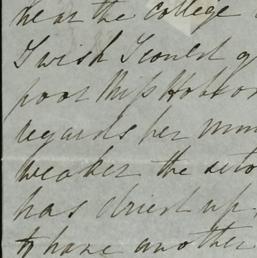 near the college
I wish I could g
poor Miss Hobso
regards her
weaker the
has dried up.
to have another